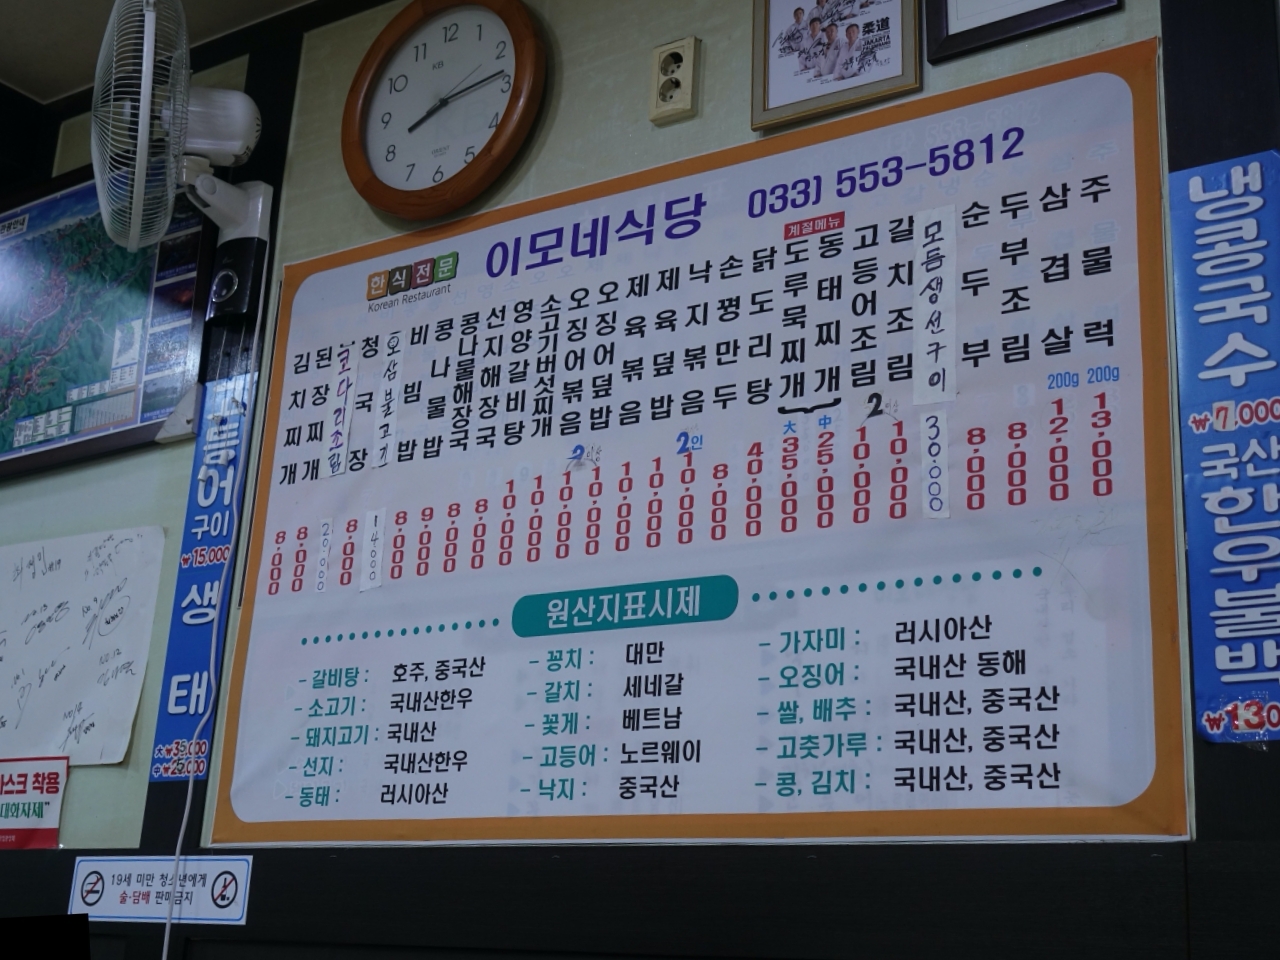 이모네식당 033) 553-5812
한식전문
Korean Restaurant
계절메뉴
김치찌개 8,000
된장찌개 8,000
코다리조림 20,000
청국장 8,000
오삼불고기 14000
비빔밥 8,000
콩나물밥 9,000
콩나물해장국 8,000
선지해장국 8,000
영양갈비탕 10,000
소고기버섯찌개 10,000
오징어볶음 10,000
오징어덮밥 10,000
제육볶음 10,000
제육덮밥 10,000
낙지볶음 2인 10,000
손평만두 8,000
닭도리탕 40,000
도루묵찌개 大 35,000
동태찌개 中 25,000
고등어조림 10,000
갈치조림 10,000
모듬생선구이 30,000
순두부 8,000
두부조림 8,000
삼겹살 200g 12,000
주물럭 200g 13,000
원산지표시제
- 갈비탕 : 호주, 중국산
- 소고기 : 국내산한우
- 돼지고기 : 국내산
- 선지 : 국내산한우
- 동태 : 러시아산
- 꽁치 : 대만
- 갈치 : 세네갈
- 꽃게 : 베트남
- 고등어 : 노르웨이
- 낙지 : 중국산
- 가자미 : 러시아산
- 오징어 : 국내산 동해
- 쌀, 배추 : 국내산, 중국산
- 고춧가루 : 국내산, 중국산
- 콩, 김치 : 국내산, 중국산
냉콩국수
₩7,000
국산
한우불백
₩130
구이
₩15,000
생태
大₩35,000
中₩25,000
마스크 착용
19세 미만 청소년에게
술·담배 판매금지
柔道
JAKARTA
KB
12 1 2 3 4 5 6 7 8 9 10 11